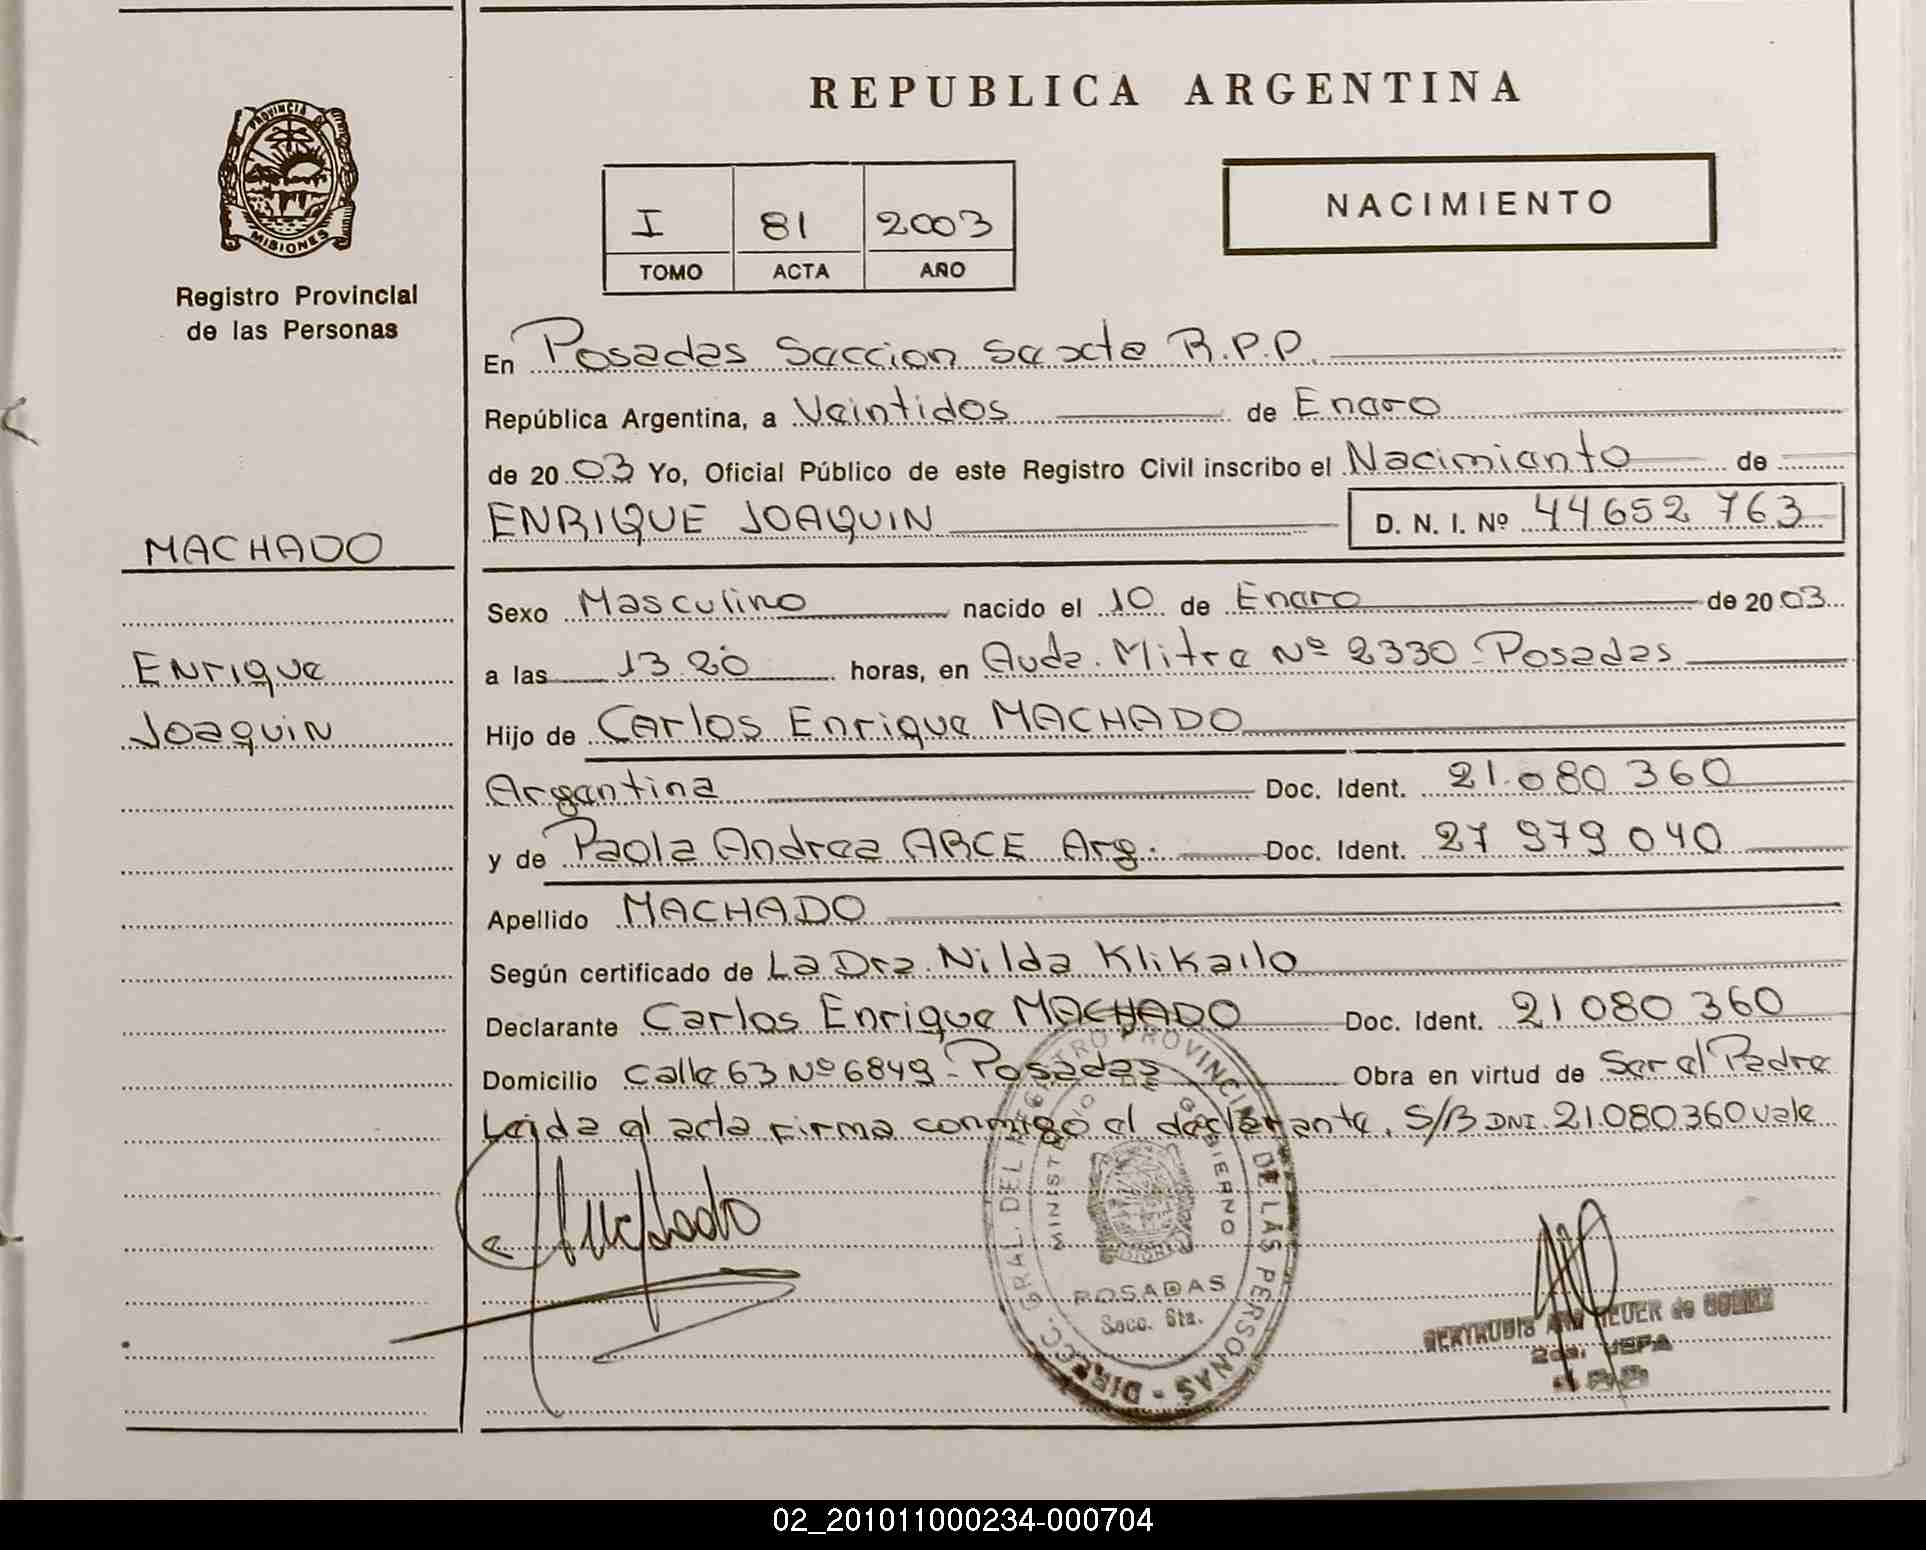 REPUBLICA ARGENTINA
PROVINCIA
MISIONES
Registro Provincial
de las Personas
I 81 2003
TOMO ACTA AÑO
NACIMIENTO
En Posadas Seccion Sexta R.P.P.
República Argentina, a Veintidos de Enero
de 20 03 Yo, Oficial Público de este Registro Civil inscribo el Nacimiento de
ENRIQUE JOAQUIN D. N. I. Nº 44 652 763
MACHADO
Enrique
Joaquin
Sexo Masculino nacido el 10 de Enero de 20 03
a las 13 20 horas, en Avda. Mitre Nº 2330 - Posadas
Hijo de Carlos Enrique MACHADO
Argentina Doc. Ident. 21.080 360
y de Paola Andrea ARCE Arg. Doc. Ident. 27 979 040
Apellido MACHADO
Según certificado de La Dra. Nilda Klikailo
Declarante Carlos Enrique MACHADO Doc. Ident. 21 080 360
Domicilio Calle 63 Nº 6849 - Posadas Obra en virtud de Ser el Padre
Leida el acta firma conmigo el declarante, S/B DNI. 21.080360 vale
DIRECC. GRAL. DEL REGISTRO PROVINCIAL DE LAS PERSONAS -
MINISTERIO DE GOBIERNO
MISIONES
POSADAS
Secc. 6ta.
GERTRUDIS HEUER de
02_201011000234-000704